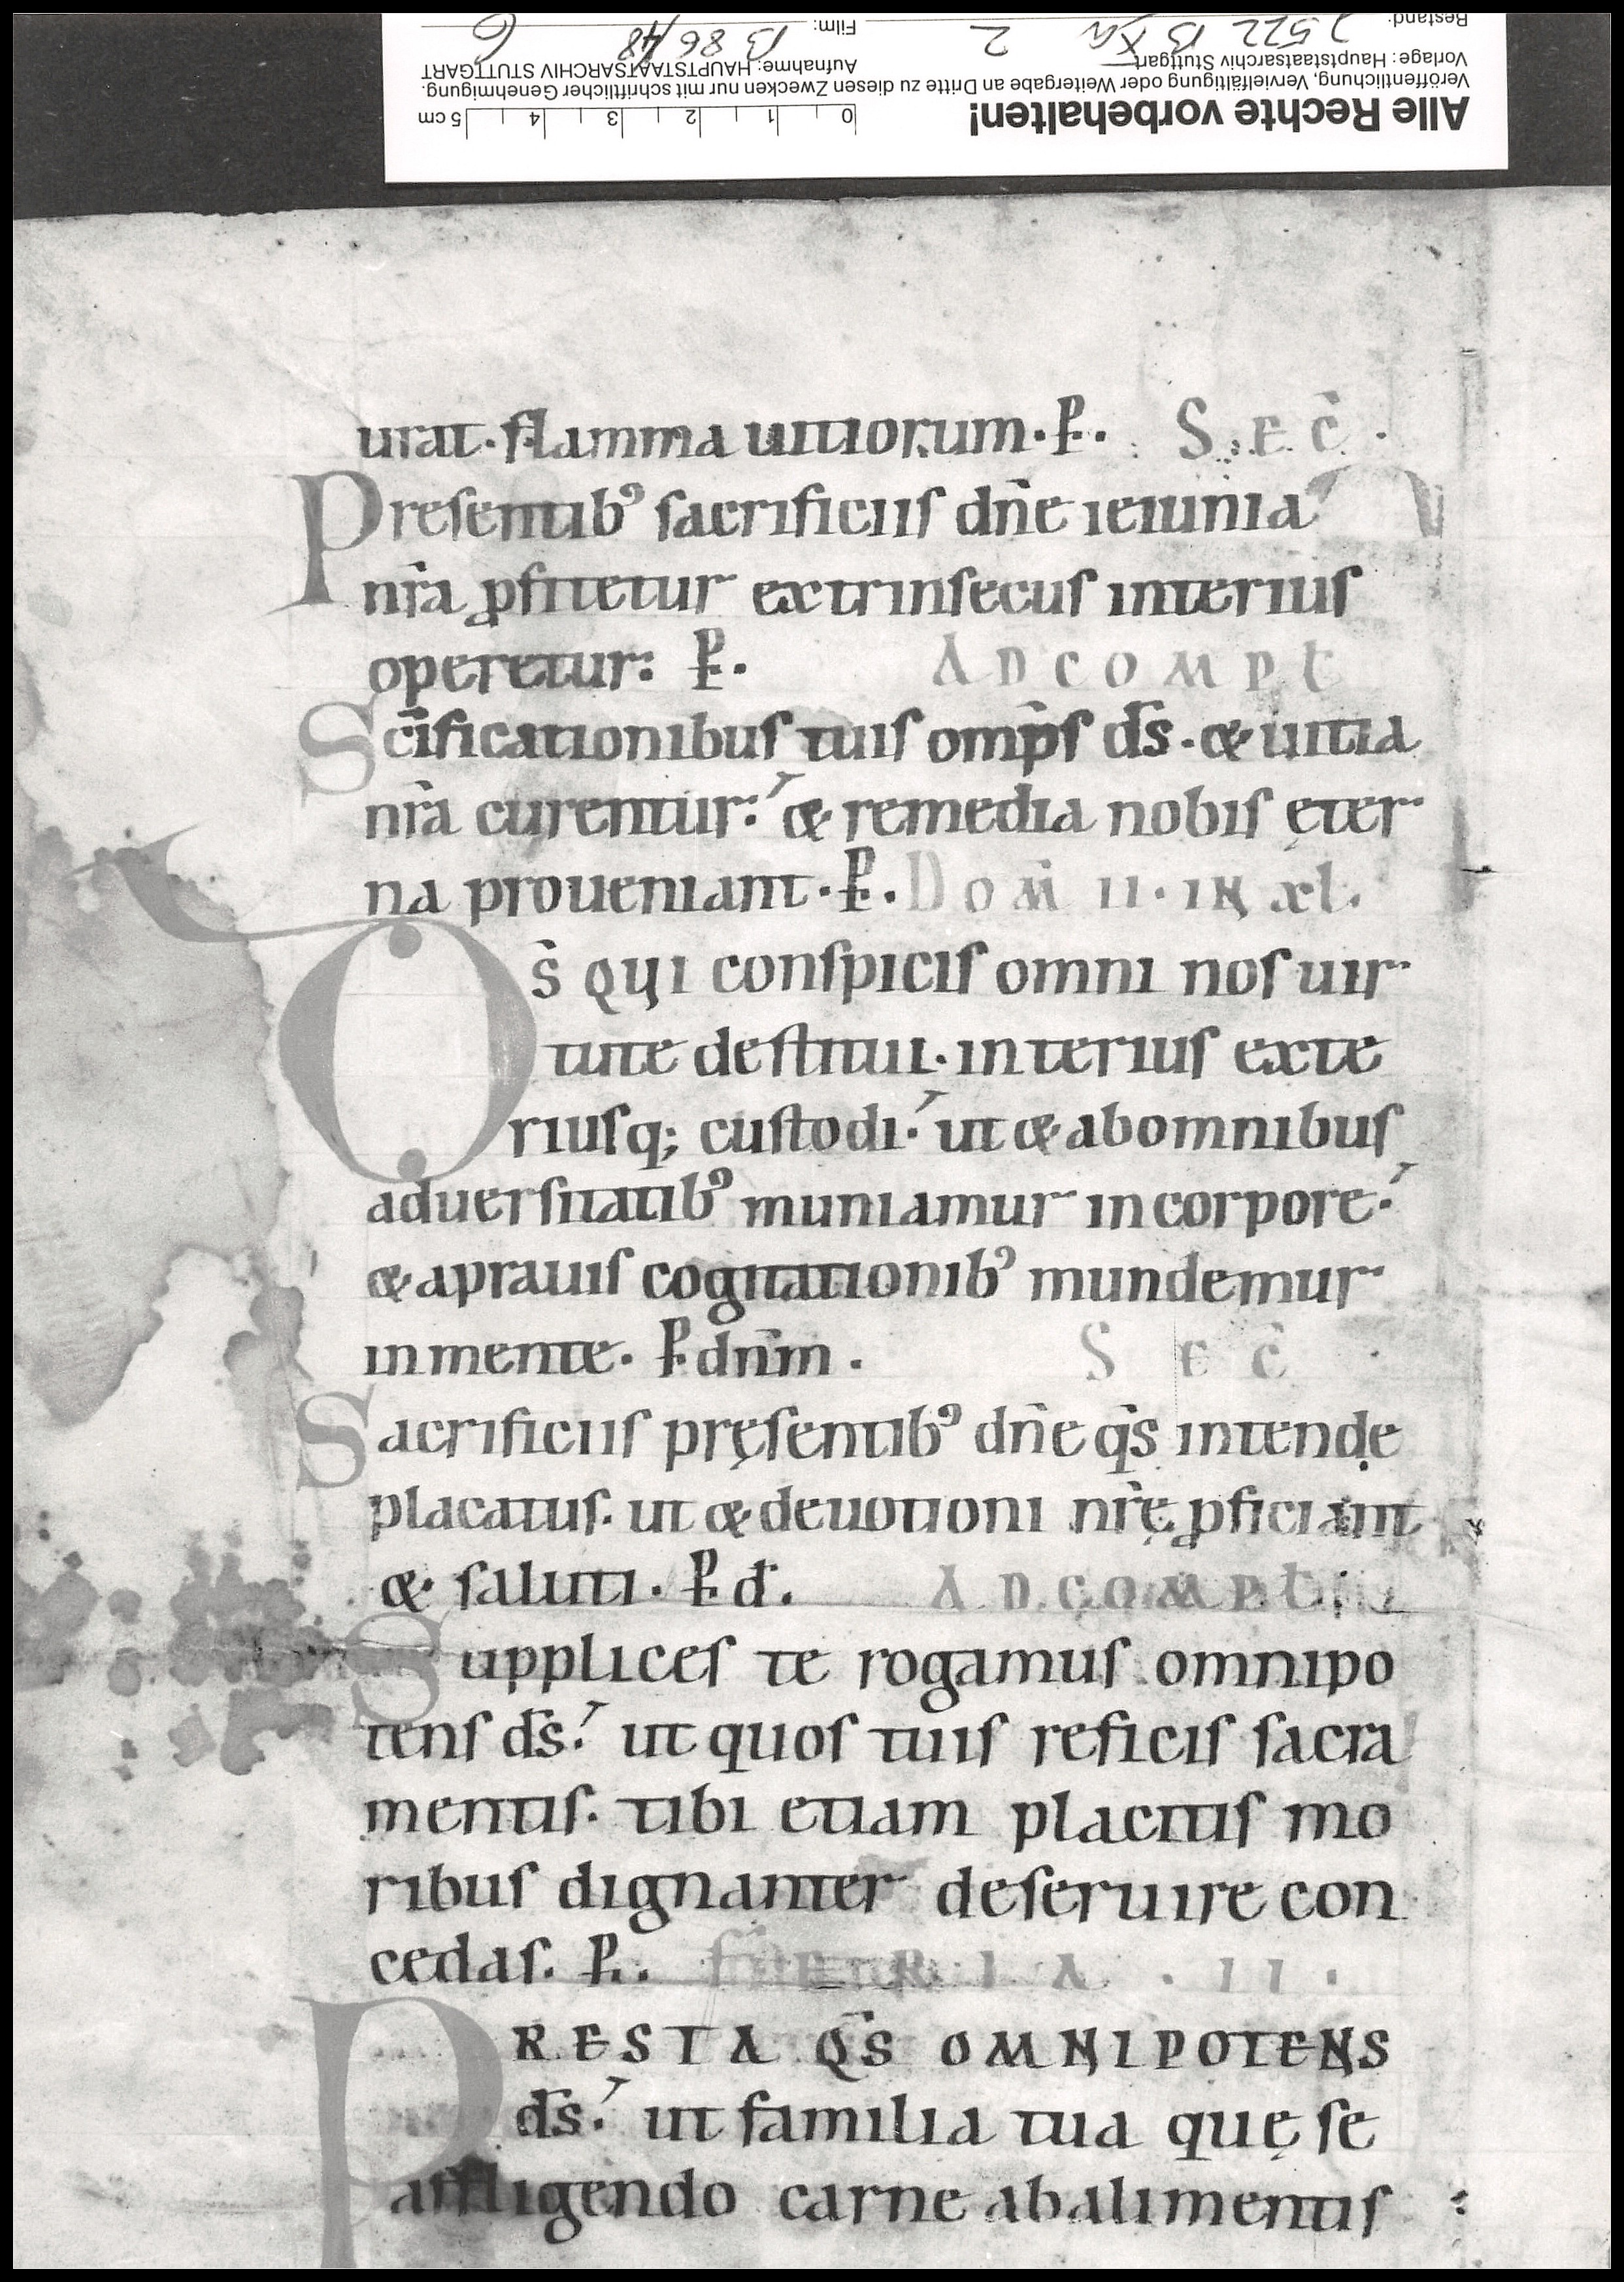 Alle Rechte vorbehalten!
Veröffentlichung, Vervielfältigung oder Weitergabe an Dritte zu diesen Zwecken nur mit schriftlicher Genehmigung.
Vorlage: Hauptstaatsarchiv Stuttgart
Aufnahme: HAUPTSTAATSARCHIV STUTTGART
Bestand: J 522 B Xa 2
Film: B 86/48 6
0 1 2 3 4 5 cm
urat· flamma uitiorum· P̵. SEC̄·
Presentibꝰ sacrificiis dn̄e ieiunia
nr̄a ꝓfitetur extrinsecus interius
operetur: P̵. AD COMPL̄
Sc̄ificationibus tuis omp̄s d̄s· & uitia
nr̄a curentur: & remedia nobis ęter
na proueniant· P̵. DOM̄ II· IN XL.
Ds̄ QUI conspicis omni nos uir
tute destitui· interius exte
riusq; custodi: ut & ab omnibus
aduersitatibꝰ muniamur in corpore:
& aprauis cogitationibꝰ mundemur
in mente· P̵ dnm̄. SEC̄
Sacrificiis pręsentibꝰ dn̄e q̄s intende
placatus· ut & deuotioni nr̄ę ꝓficiant
& saluti· P̵ d̄. AD COMPL̄
Supplices te rogamus omnipo
tens d̄s: ut quos tuis reficis sacra
mentis· tibi etiam placitis mo
ribus dignanter deseruire con
cedas. P̵. FERIA· II·
PRESTA Q̄S OMNIPOTENS
d̄s: ut familia tua quę se
affligendo carne ab alimentis